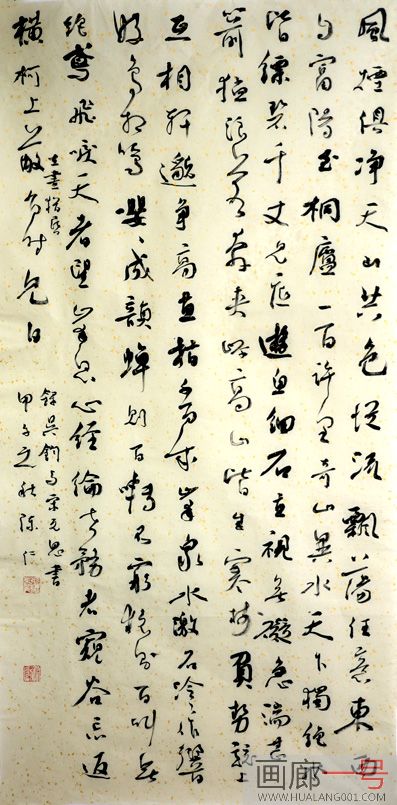 風煙俱淨天山共色從流飄蕩任意東西
自富陽至桐廬一百許里奇山異水天下獨絕水
皆縹碧千丈見底遊魚細石直視無礙急湍甚
箭猛浪若奔夾岸高山皆生寒樹負勢競上
互相軒邈爭高直指千百成峯泉水激石泠泠作響
好鳥相鳴嚶嚶成韻蟬則百囀不窮猿則百叫無
絕鳶飛唳天者望峯息心經綸世務者窺谷忘返
橫柯上蔽有時見日
在晝猶昏
錄吳鈞與宋元思書
甲子之秋陳仁
画廊一号
WWW.HUALANG001.COM